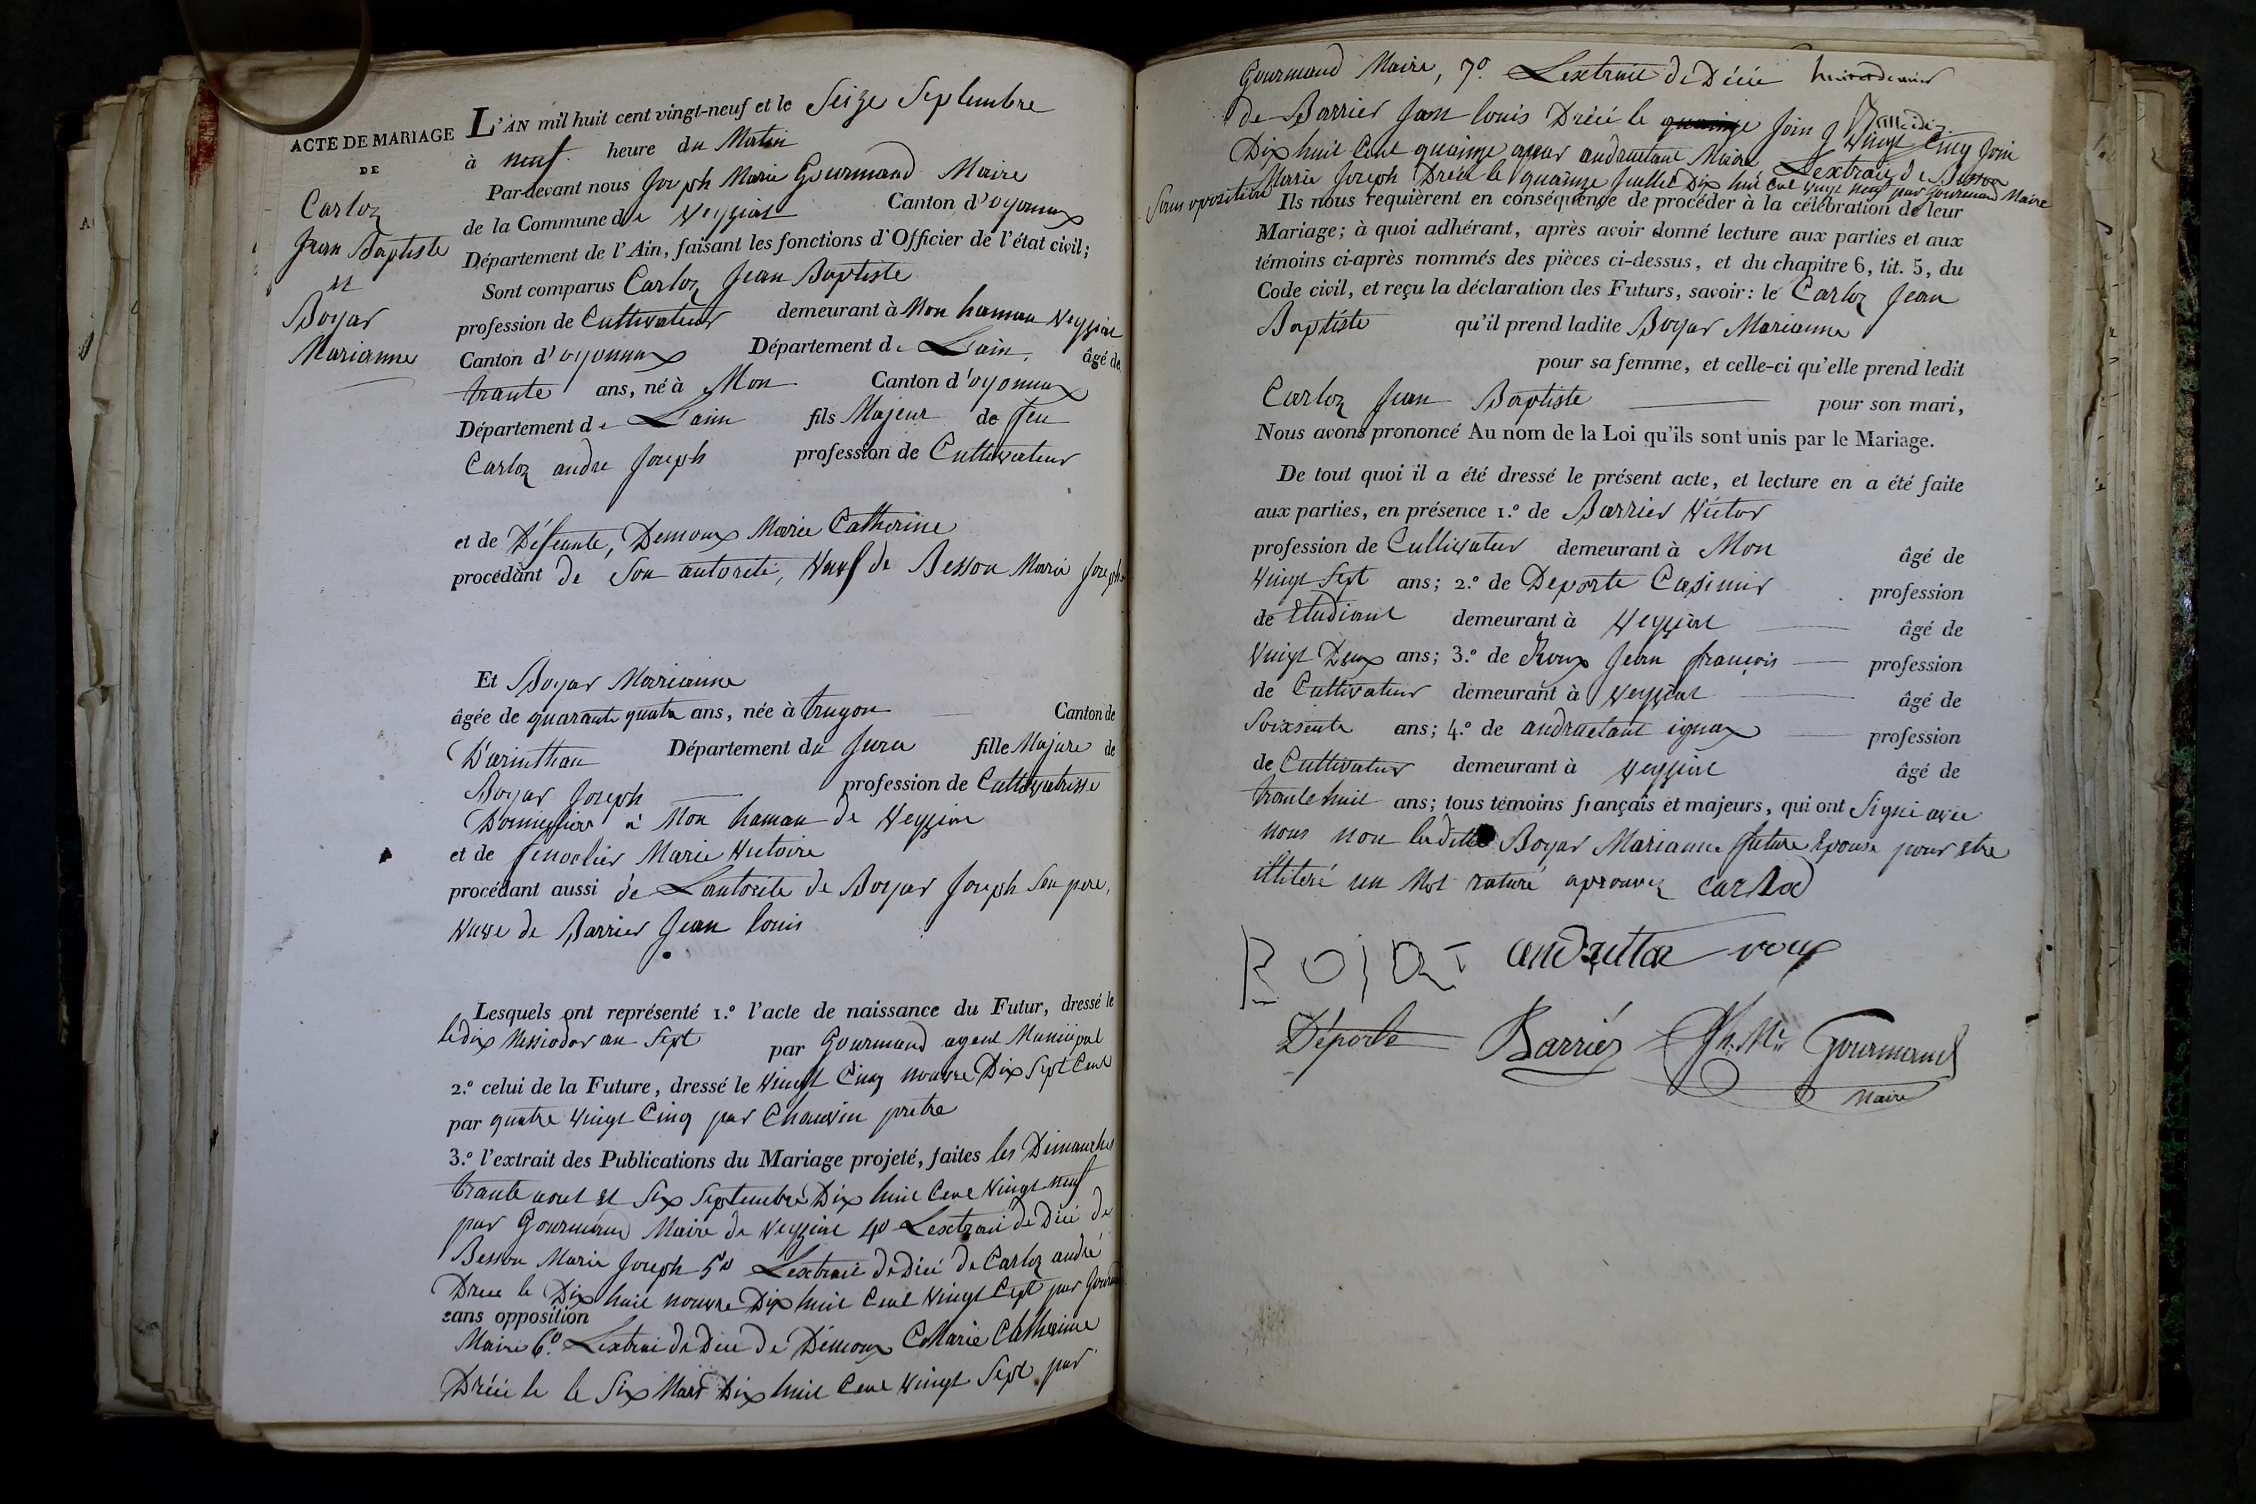 ACTE DE MARIAGE
DE
Carloz
Jean Baptiste
et
Boyar
Marianne
L'AN mil huit cent vingt-neuf et le Seize Septembre
à neuf heure du Matin
Par-devant nous Joseph Marie Gourmand Maire
de la Commune de Veyziat Canton d'oyonnax
Département de l'Ain, faisant les fonctions d'Officier de l'état civil;
Sont comparus Carloz Jean Baptiste
profession de Cultivateur demeurant à Mon hamau Veyziat
Canton d'oyonnax Département de Lain. âgé de
trante ans, né à Mon Canton d'oyonnax
Département de Lain fils Majeur de feu
Carloz andre Joseph profession de Cultivateur
et de Défeunte, Demoux Marie Catherine
procédant de Son autorete, Vuef de Besson Marie Joseph
Et Boyar Marianne
âgée de quarante quatre ans, née à trugon Canton de
D'arinthau Département du Jura fille Majure de
Boyar Joseph profession de Cultivatrisse
Domicilier à Mon hamau de Veyziat
et de Marie Victoire
procédant aussi de Lautorete de Boyar Joseph Son pere,
Vuve de Barrier Jean louis
Lesquels ont représenté 1.º l'acte de naissance du Futur, dressé le
ledix Messiodor an Sept par Gourmand agent Municipal
2.º celui de la Future, dressé le Vingt Cinq novvre Dix Sept Cent
par quatre Vingt Cinq par Chauvin pretre
3.º l'extrait des Publications du Mariage projeté, faites les Dimanches
trante aout et Six Septembre Dix huit Cent Vingt neuf
par Gourmand Maire de Veyziat 4º Lextrait de Dicé de
Besson Marie Joseph 5º Lextrait de Dicé de Carloz andré
Drece le Dix huit novvre Dix huit Cent Vingt Cept par
sans opposition
Maire 6º Lextrai de Dicé de Démoux Marie Catherine
Dréce le le Six Mars Dix huit Cent Vingt Sept par
Gourmand Maire, 7º Lextrait de Dicée
de Barrier Jean louis Drécé le Join Vingt Cinq Join
Dix huit Cent quainze apar andruetant Maire Lextrait de Besson
Marie Joseph Drecée le quainze Juillet Dix hui Cent Vingt neuf par Gourmand Maire
Sans oposition Ils nous requièrent en conséquence de procéder à la célébration de leur
Mariage; à quoi adhérant, après avoir donné lecture aux parties et aux
témoins ci-après nommés des pièces ci-dessus, et du chapitre 6, tit. 5, du
Code civil, et reçu la déclaration des Futurs, savoir: le Carloz Jean
Baptiste qu'il prend ladite Boyar Marianne
pour sa femme, et celle-ci qu'elle prend ledit
Carloz Jean Baptiste pour son mari,
Nous avons prononcé Au nom de la Loi qu'ils sont unis par le Mariage.
De tout quoi il a été dressé le présent acte, et lecture en a été faite
aux parties, en présence 1.º de Barrier Victor
profession de Cultivateur demeurant à Mon âgé de
Vingt Sept ans; 2.º de Deporte Casimir profession
de Etudiant demeurant à Veyziat âgé de
Vingt Deux ans; 3.º de Roux Jean françois profession
de Cultivateur demeurant à Veyziat âgé de
Soixsente ans; 4.º de andruetant ignax profession
de Cultivateur demeurant à Veyziat âgé de
trante huit ans; tous témoins français et majeurs, qui ont Signé avec
nous non laditte Boyar Marianne future Epouse pour etre
illiteré un Mot raturé aprouvez Carloz
BOIAT roux
Déporte Barriér Jh. Mie Gourmand
Maire